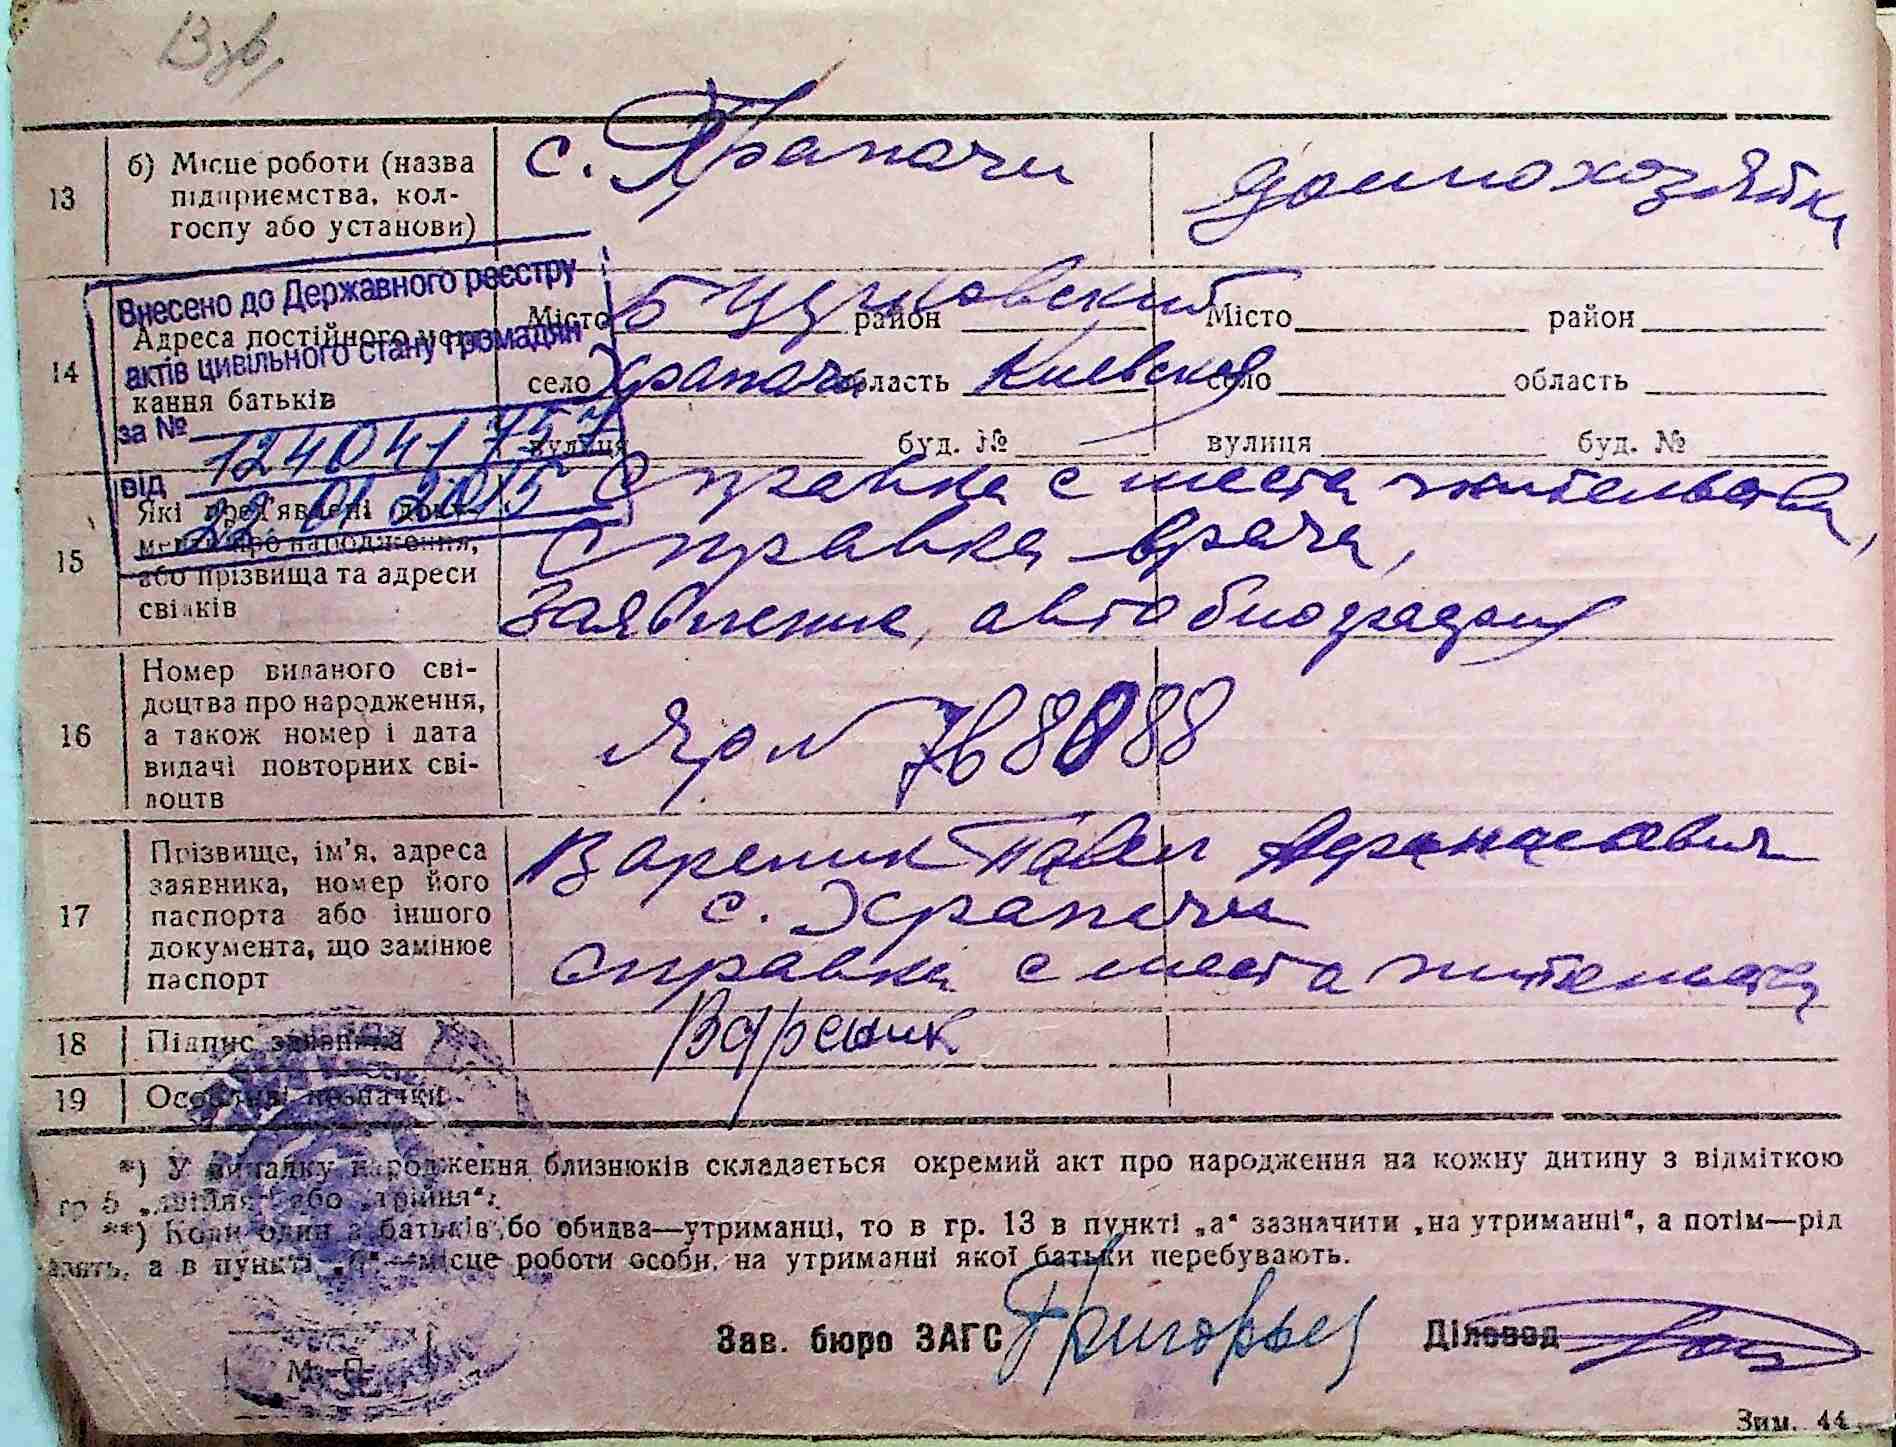 13
б) Місце роботи (назва
підприємства, кол-
госпу або установи)
с. Храпачи
домохозяйка
Внесено до Державного реєстру
актів цивільного стану громадян
за № 12404175757
від 22 01 2015
14
Адреса постійного
кання батьків
Місто Б Церковский район
село Храпачи область Киевской
вулиця буд. №
Місто район
село область
вулиця буд. №
15
Які пред'явлені доку-
менти про народження,
або прізвища та адреси
свідків
Справка с места жительства,
Справка врача,
Заявление, автобиография
16
Номер виданого сві-
доцтва про народження,
а також номер і дата
видачі повторних сві-
доцтв
№ 768088
17
Прізвище, ім'я, адреса
заявника, номер його
паспорта або іншого
документа, що замінює
паспорт
Вареник Павел Афанасьевич
с. Храпачи
Справка с места жительства
18
Підпис заявника
Вареник
19
Особливі позначки
*) У випадку народження близнюків складається окремий акт про народження на кожну дитину з відміткою
гр 5 „двійня“ або „трійня“.
**) Коли один з батьків бо обидва—утриманці, то в гр. 13 в пункті „а“ зазначити „на утриманні“, а потім—рід
а в пункті „б“—місце роботи особи, на утриманні якої батьки перебувають.
Зав. бюро ЗАГС Григорьев
Діловод
М. П.
Зим. 44